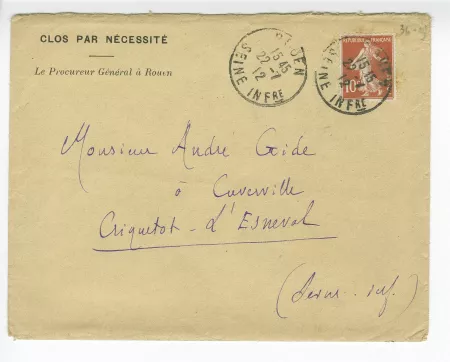 CLOS PAR NÉCESSITÉ
Le Procureur Général à Rouen
ROUEN
15 45
22 - 7
12
SEINE INFRE
REPUBLIQUE FRANÇAISE
10
15 45
SEINE INFRE
Monsieur André Gide
à Cuverville
Criquetot - L'Esneval
(Seine - inf.)